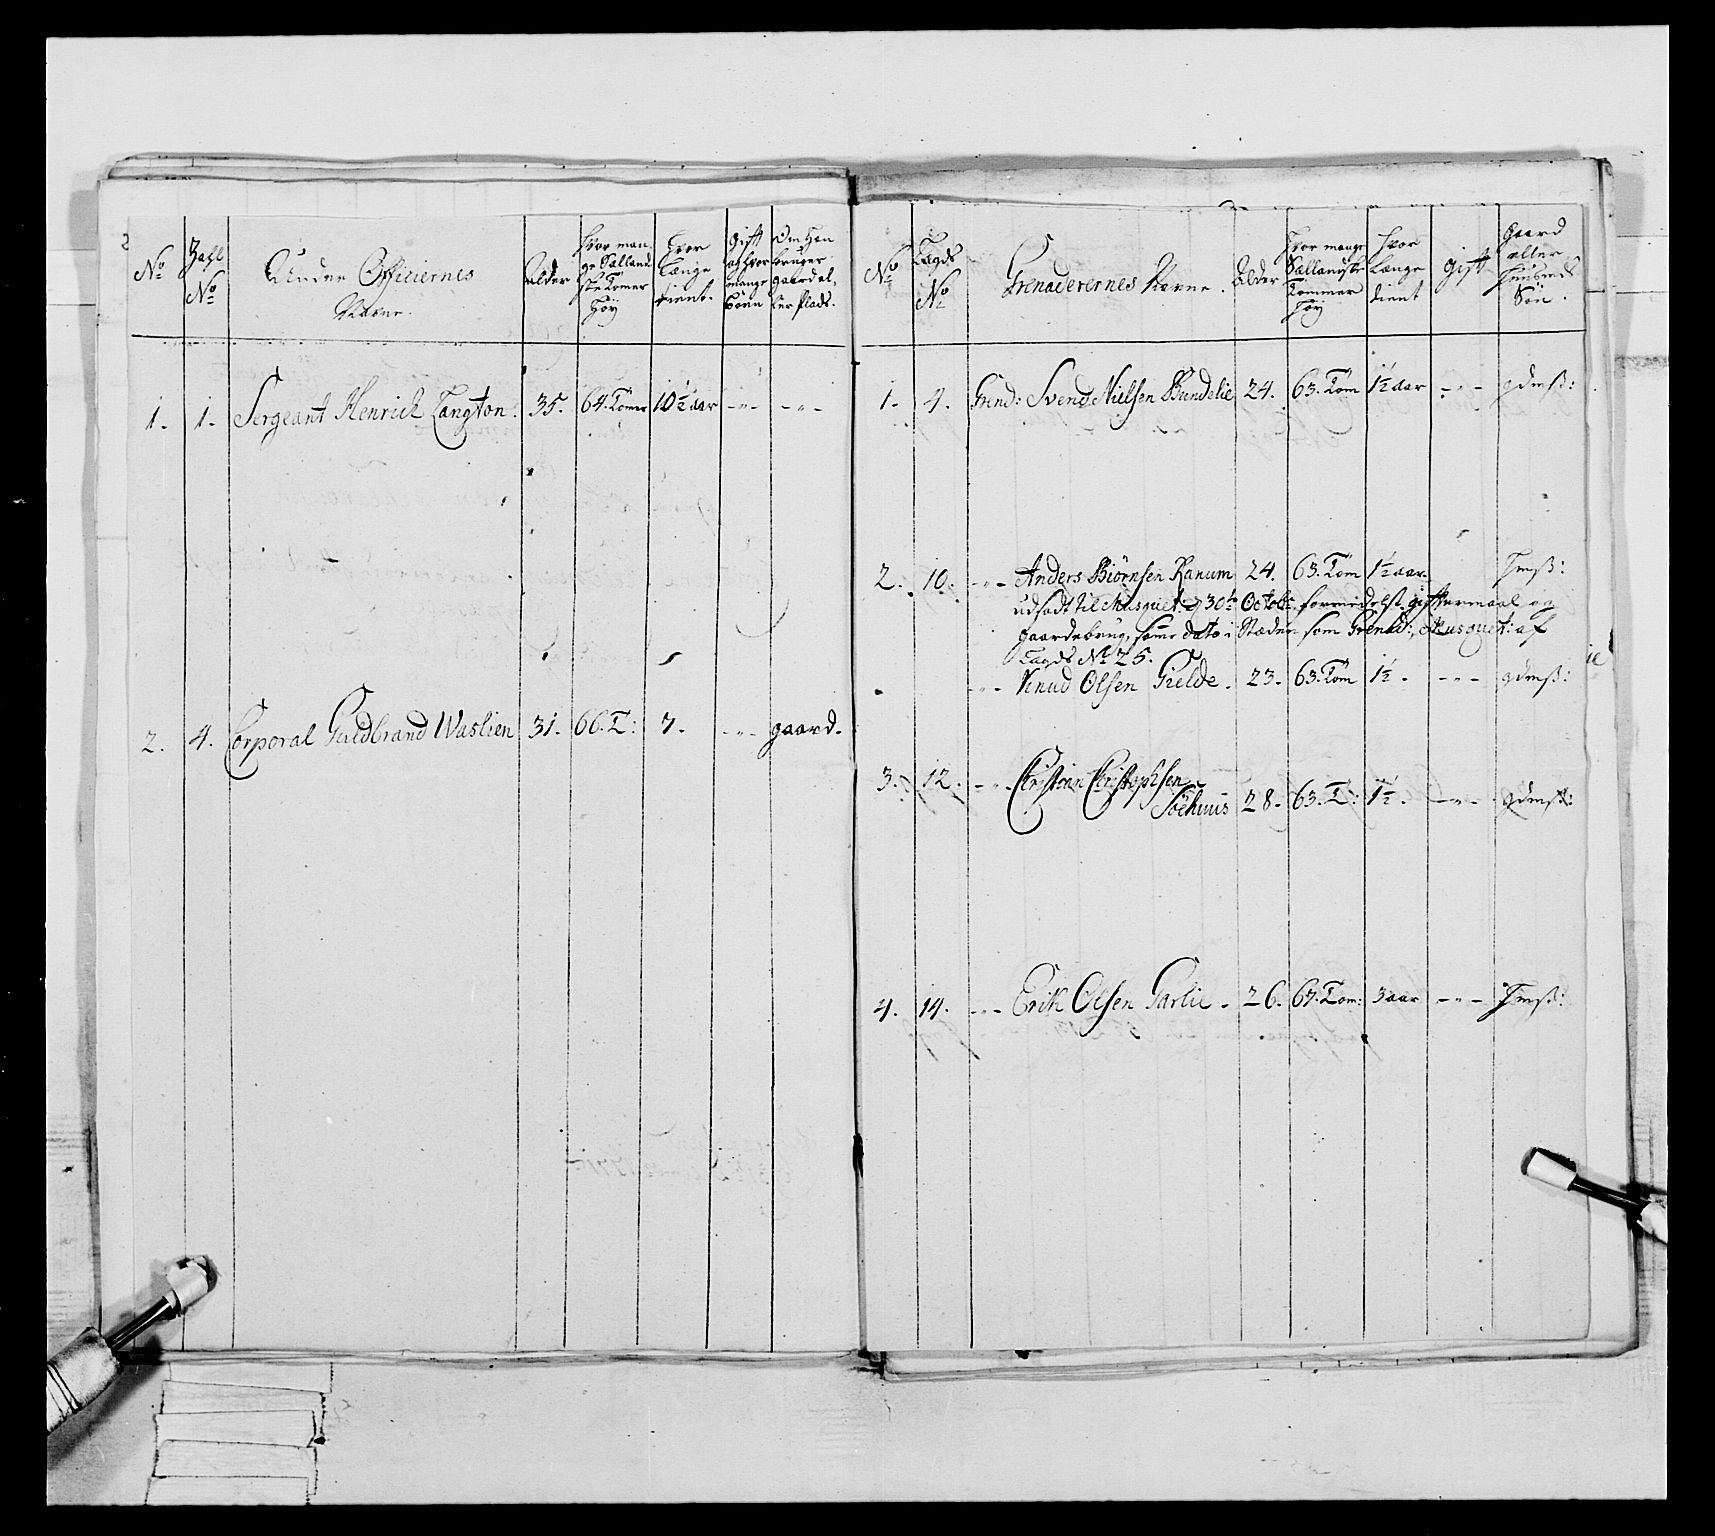 No
Zahl No
Under Officiernes Navne.
alder
Hvor mange Sællandske Tomer Höy
Hvor længe tient.
gift og hvor mange Börn
Om Han bruger gaard eller Plads.
1. 1. Sergeant Henrich Langton. 35. 64. Tomer 10½ aar -"- -"-
2. 4. Corporal Guldbrand Waslien 31. 66. T: 7. -"- gaard.
No
Lægds No
Grenaderernes Navne.
Alder
Hvor mange Sællandske Tommer Höy
Hvor længe dient
gift
Gaard eller Huusmds Sön.
1. 4. Grend: Svend Nielsen Bundelie 24. 63. Tom 1½ aar -"- gdmß:
2. 10. -"- Anders Biörnsen Ranum 24. 63. Tom 1½ aar. Hmß:
udsadt til Musquet: d 30te Octobr formedelst gifftermaal og
gaardebrug, samme dato i Stæden som Grenad:, Musquet: af
Lægds No 25.
-"- Knud Olsen Gielde. 23. 63. Tom 1½. -"- gdmß:
3. 12. -"- Christian Christophsen
Söehuus 28. 63. T: 1½. -"- gdmß:
4. 14. -"- Erik Olsen Garlie. 26. 67. Tom: 3 aar -"- Hmß: